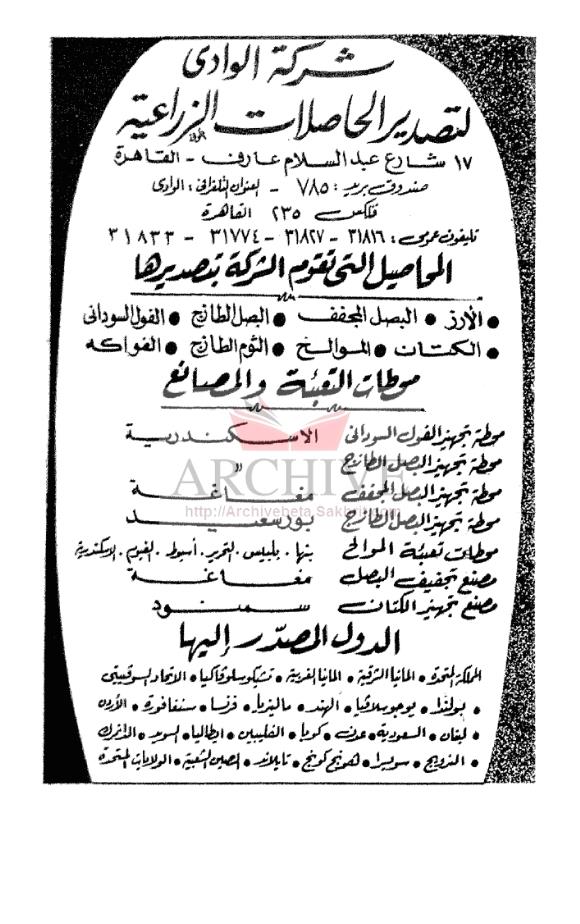 شركة الوادى
لتصدير الحاصلات الزراعية
١٧ شارع عبد السلام عارف - القاهرة
صندوق بريد: ٧٨٥ - العنوان التلغرافى: الوادى
تلكس ٢٣٥ القاهرة
تليفون عمومى: ٣١٨١٦ - ٣١٨٢٧ - ٣١٧٧٤ - ٣١٨٣٣
المحاصيل التى تقوم الشركة بتصديرها
• الأرز • البصل المجفف • البصل الطازج • الفول السودانى
• الكتان • الموالح • الثوم الطازج • الفواكه
محطات التعبئة والمصانع
محطة تجهيز الفول السودانى الاسكندرية
محطة تجهيز البصل الطازج "
محطة تجهيز البصل المجفف مغاغة
محطة تجهيز البصل الطازج بورسعيد
محطات تعبئة الموالح بنها . بلبيس . التحرير . أسيوط . الفيوم . الاسكندرية
مصنع تجفيف البصل مغاغة
مصنع تجهيز الكتان سمنود
الدول المصدر إليها
المملكة المتحدة • المانيا الشرقية • المانيا الغربية • تشيكوسلوفاكيا • الاتحاد السوفيتى
• بولندا • يوجوسلافيا • الهند • ماليزيا • فرنسا • سنغافورة • الأردن
• لبنان • السعودية • عدن • كوبا • الفليبين • ايطاليا • السويد • الدانمرك
• النرويج • سويسرا • هونج كونج • تايلاند • الصين الشعبية • الولايات المتحدة
ARCHIVE
http://Archivebeta.Sakhrit.com